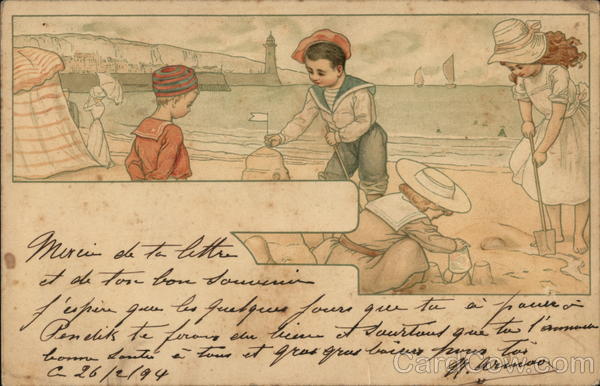 Merci de ta lettre
et de ton bon souvenir
j'espère que les quelques jours que tu a passé à
Pendik te feront du bien et surtout que tu t'amuse
bonne santé à tous et gros gros baisers pour toi
Ce 26/2/94
CardCow.com